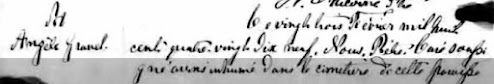 Le vingt trois Février mil huit
Angèle Gravel. cent quatre-vingt dix neuf, Nous, Ptre. Curé soussi
gné avons inhumé dans le cimetière de cette paroisse